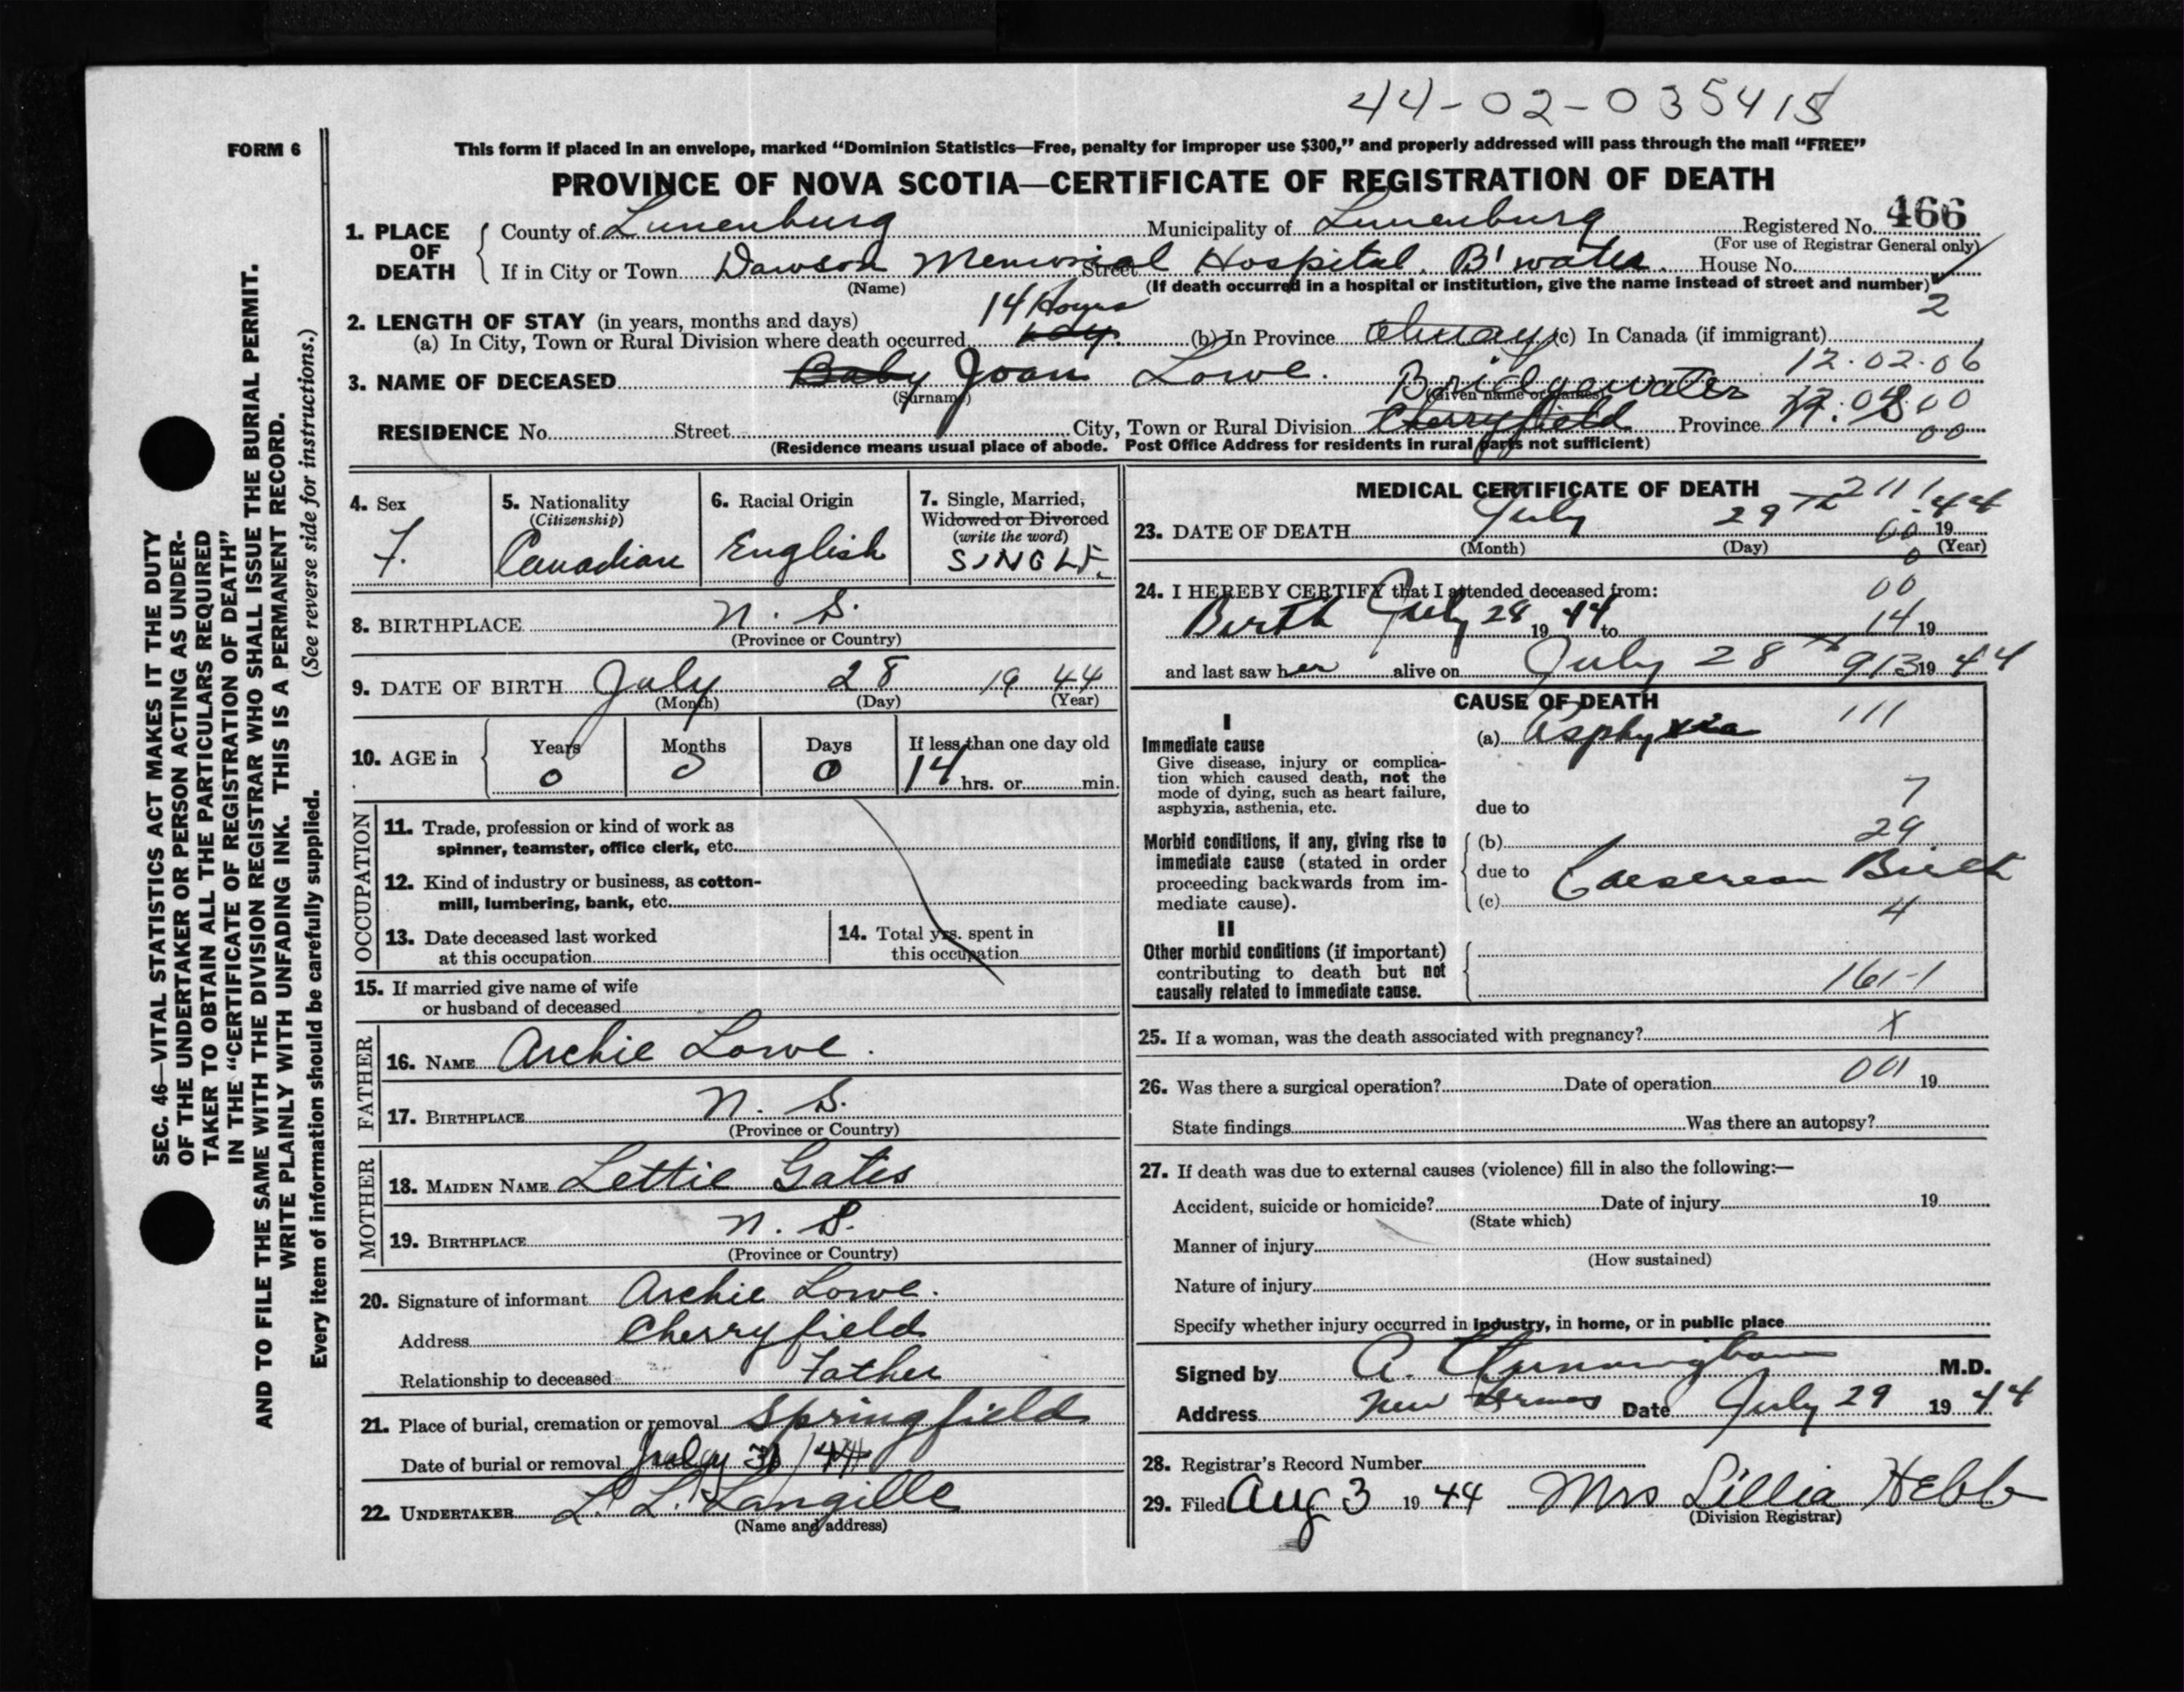 44-02-035415
FORM 6
This form if placed in an envelope, marked "Dominion Statistics—Free, penalty for improper use $300," and properly addressed will pass through the mail "FREE"
PROVINCE OF NOVA SCOTIA—CERTIFICATE OF REGISTRATION OF DEATH
1. PLACE OF DEATH County of Lunenburg Municipality of Lunenburg Registered No. 466
(For use of Registrar General only)
If in City or Town Dawson Memorial Hospital. B'water. Street House No.
(Name) (If death occurred in a hospital or institution, give the name instead of street and number)
2
2. LENGTH OF STAY (in years, months and days) 14 Hours
(a) In City, Town or Rural Division where death occurred (b) In Province Always (c) In Canada (if immigrant)
12.02.06
3. NAME OF DECEASED Baby Joan Lowe.
(Surname) (Given name or names)
Bridgewater
RESIDENCE No. Street City, Town or Rural Division Cherryfield Province
00
(Residence means usual place of abode. Post Office Address for residents in rural parts not sufficient)
4. Sex
F.
5. Nationality
(Citizenship)
Canadian
6. Racial Origin
English
7. Single, Married,
Widowed or Divorced
(write the word)
SINGLE.
8. BIRTHPLACE N. S.
(Province or Country)
9. DATE OF BIRTH July 28 19 44
(Month) (Day) (Year)
10. AGE in
Years Months Days If less than one day old
0 0 0 14 hrs. or min.
OCCUPATION
11. Trade, profession or kind of work as
spinner, teamster, office clerk, etc.
12. Kind of industry or business, as cotton-
mill, lumbering, bank, etc.
13. Date deceased last worked
at this occupation
14. Total yrs. spent in
this occupation
15. If married give name of wife
or husband of deceased
FATHER
16. NAME Archie Lowe.
17. BIRTHPLACE N. S.
(Province or Country)
MOTHER
18. MAIDEN NAME Lettie Gates
19. BIRTHPLACE N. S.
(Province or Country)
20. Signature of informant Archie Lowe.
Address Cherryfield
Relationship to deceased Father
21. Place of burial, cremation or removal Springfield
Date of burial or removal July 31/44
22. UNDERTAKER L. L. Langille
(Name and address)
MEDICAL CERTIFICATE OF DEATH
2111
23. DATE OF DEATH July 29th 19 44
(Month) (Day) (Year)
24. I HEREBY CERTIFY that I attended deceased from:
00
Birth July 28 19 44 to 14 19
and last saw her alive on July 28th 913 19 44
CAUSE OF DEATH
I
Immediate cause
Give disease, injury or complica-
tion which caused death, not the
mode of dying, such as heart failure,
asphyxia, asthenia, etc.
(a) Asphyxia 111
7
due to
Morbid conditions, if any, giving rise to
immediate cause (stated in order
proceeding backwards from im-
mediate cause).
(b) 29
due to Caeserean Birth
(c) 4
II
Other morbid conditions (if important)
contributing to death but not
causally related to immediate cause.
161-1
25. If a woman, was the death associated with pregnancy? X
26. Was there a surgical operation? Date of operation 001 19
State findings Was there an autopsy?
27. If death was due to external causes (violence) fill in also the following:—
Accident, suicide or homicide? Date of injury 19
(State which)
Manner of injury
(How sustained)
Nature of injury
Specify whether injury occurred in industry, in home, or in public place
Signed by A. Cunningham M.D.
Address New Date July 29 19 44
28. Registrar's Record Number
29. Filed Aug 3 19 44 Mrs Lillia Hebb
(Division Registrar)
SEC. 46—VITAL STATISTICS ACT MAKES IT THE DUTY
OF THE UNDERTAKER OR PERSON ACTING AS UNDER-
TAKER TO OBTAIN ALL THE PARTICULARS REQUIRED
IN THE "CERTIFICATE OF REGISTRATION OF DEATH"
AND TO FILE THE SAME WITH THE DIVISION REGISTRAR WHO SHALL ISSUE THE BURIAL PERMIT.
WRITE PLAINLY WITH UNFADING INK. THIS IS A PERMANENT RECORD.
Every item of information should be carefully supplied. (See reverse side for instructions.)